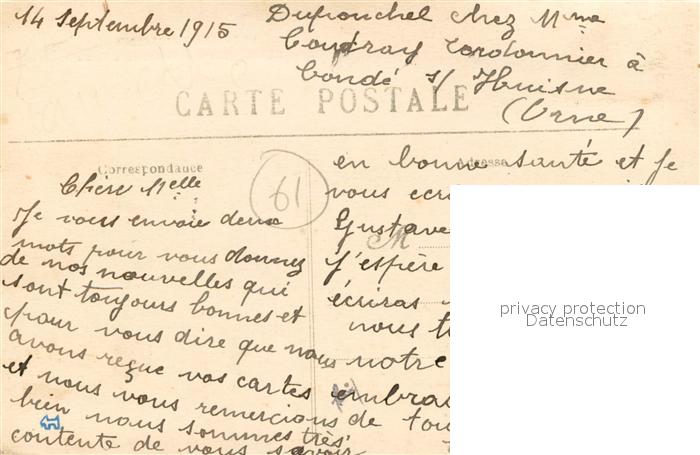 14 Septembre 1915
Dufouchel chez Mme
Coutray Cordonnier à
Condé s/ Huisne
(Orne)
CARTE POSTALE
Correspondance
Adresse
61
Chère Melle
Je vous envoie deux
mots pour vous donnez
de nos nouvelles qui
sont toujours bonnes et
pour vous dire que nous
avons reçue vos cartes
et nous vous remercions
bien nous sommes très
contente de vous savoir
en bonne santé et je
vous
Gustave
M
j'espère
écriras
nous
notre
de
privacy protection
Datenschutz